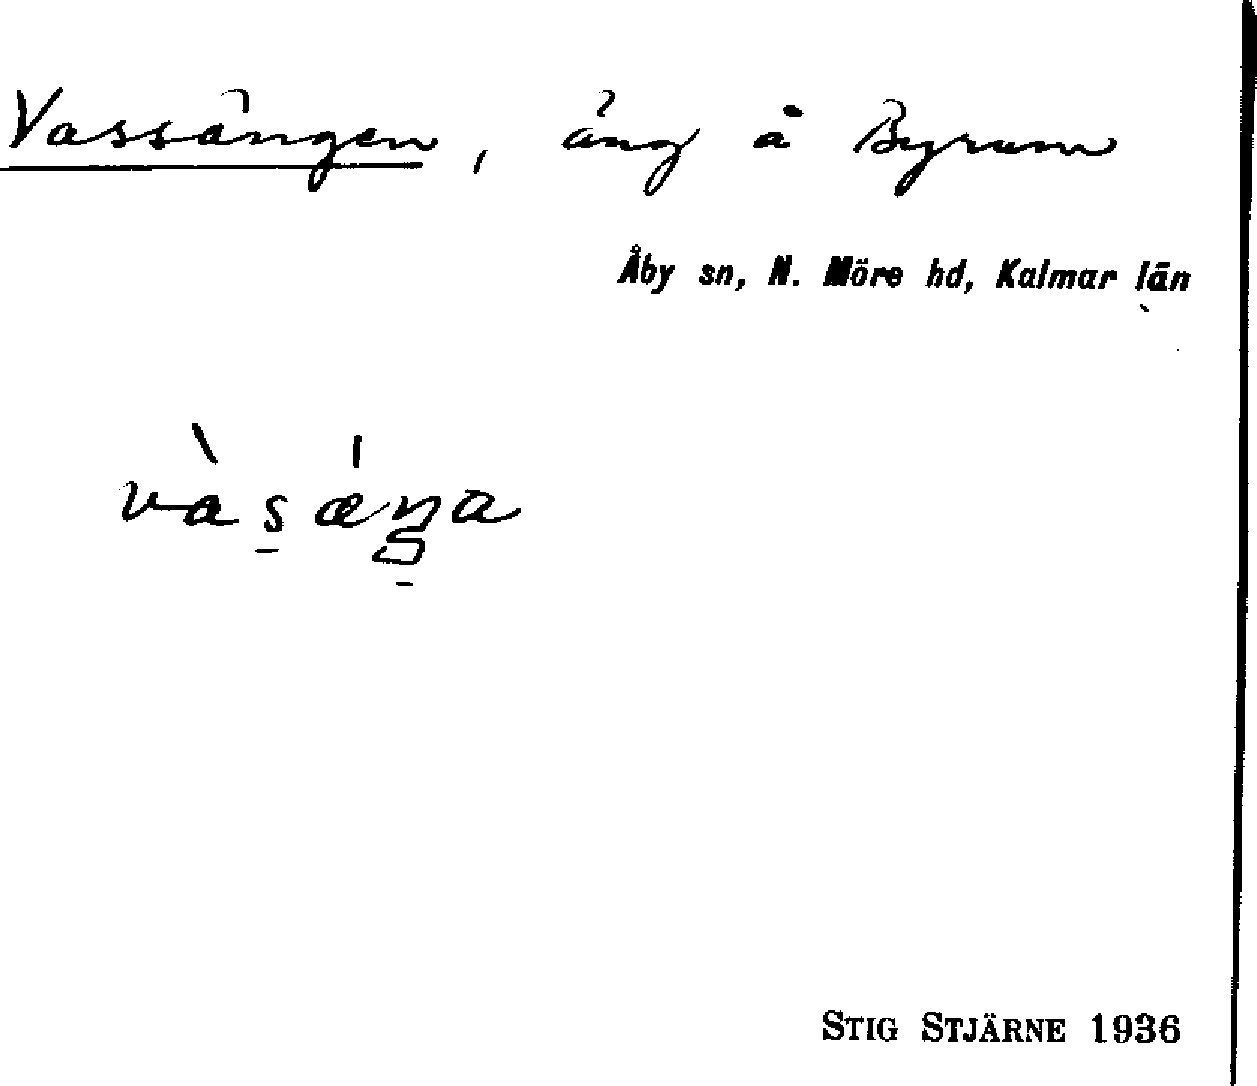 Vassängen, äng å Byrum
Åby sn, N. Möre hd, Kalmar län
vàsǽŋa
STIG STJÄRNE 1936